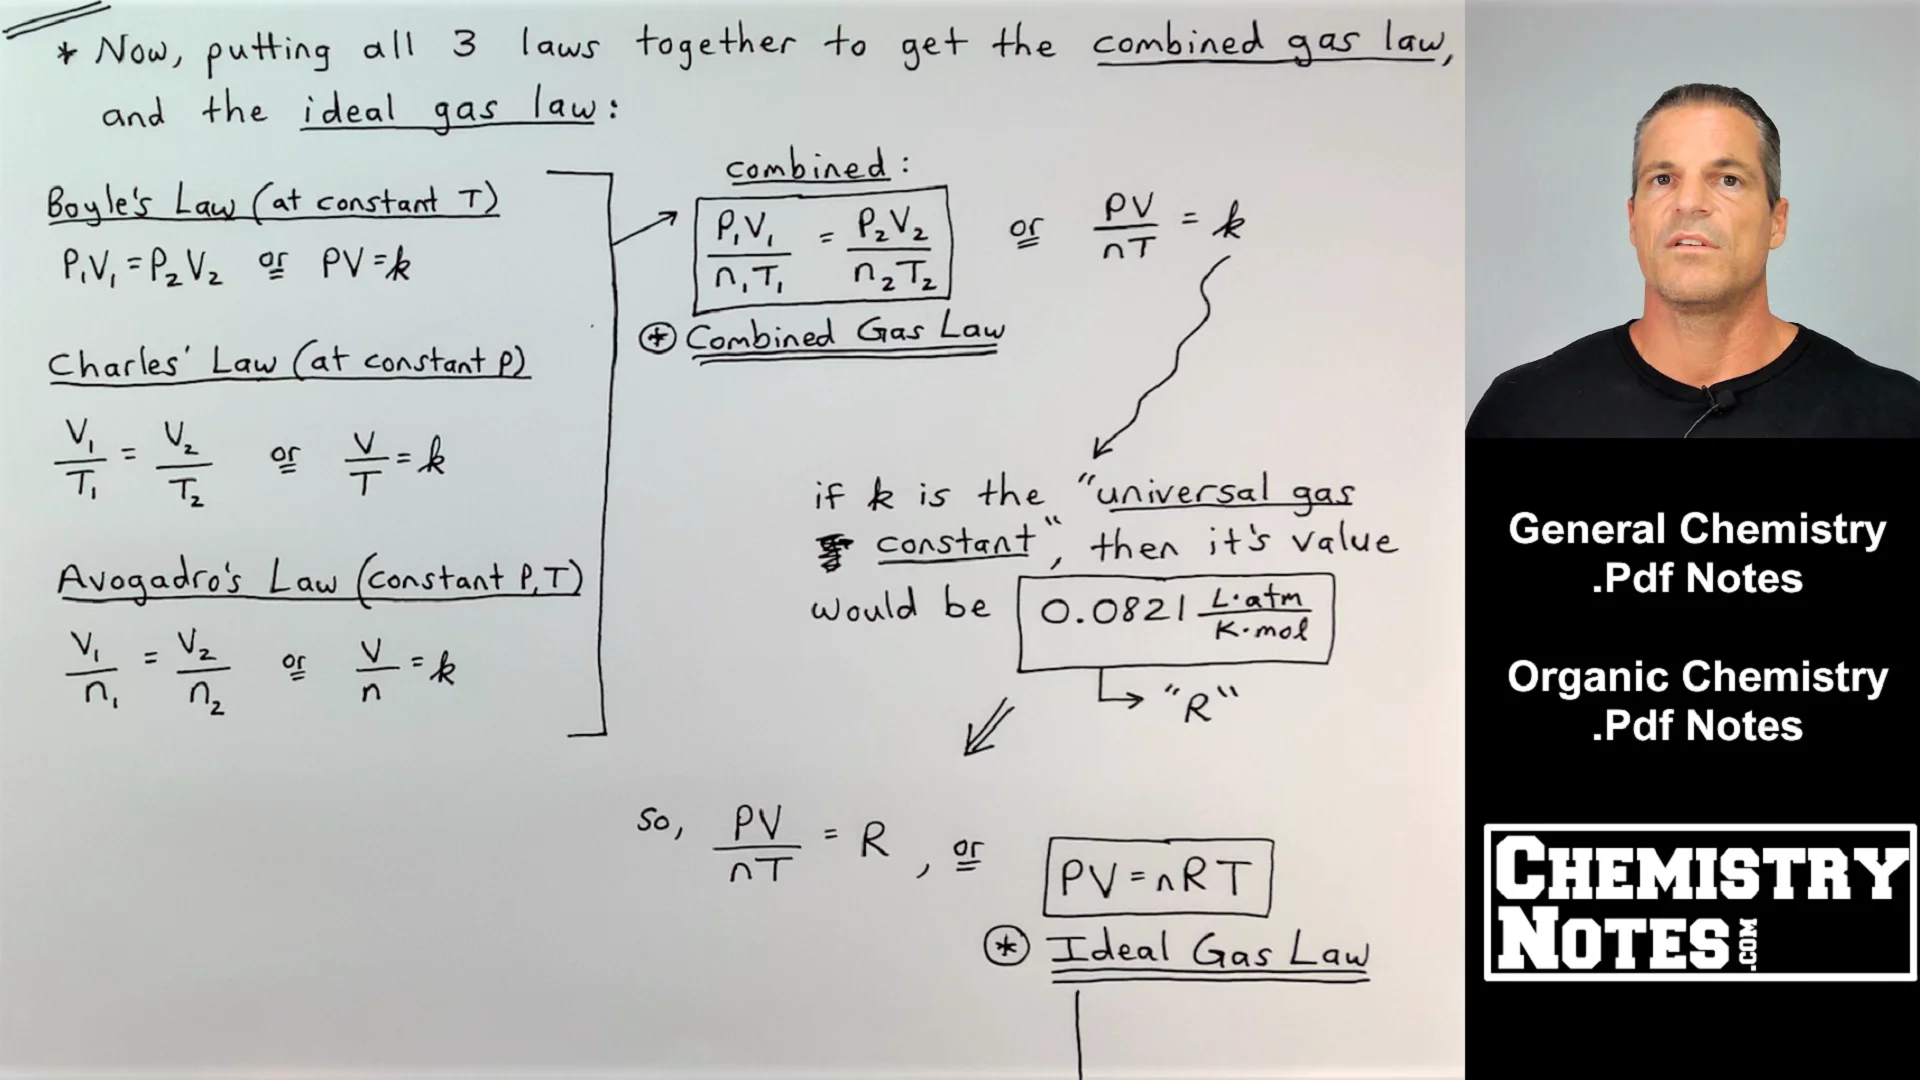 * Now, putting all 3 laws together to get the combined gas law,
and the ideal gas law:
Boyle's Law (at constant T)
P₁V₁ = P₂V₂ or PV = k
Charles' Law (at constant P)
V₁/T₁ = V₂/T₂ or V/T = k
Avogadro's Law (constant P,T)
V₁/n₁ = V₂/n₂ or V/n = k
combined:
P₁V₁/n₁T₁ = P₂V₂/n₂T₂ or PV/nT = k
* Combined Gas Law
if k is the "universal gas
constant", then it's value
would be 0.0821 L·atm/K·mol
"R"
So, PV/nT = R, or PV = nRT
* Ideal Gas Law
General Chemistry
.Pdf Notes
Organic Chemistry
.Pdf Notes
CHEMISTRY
NOTES.COM